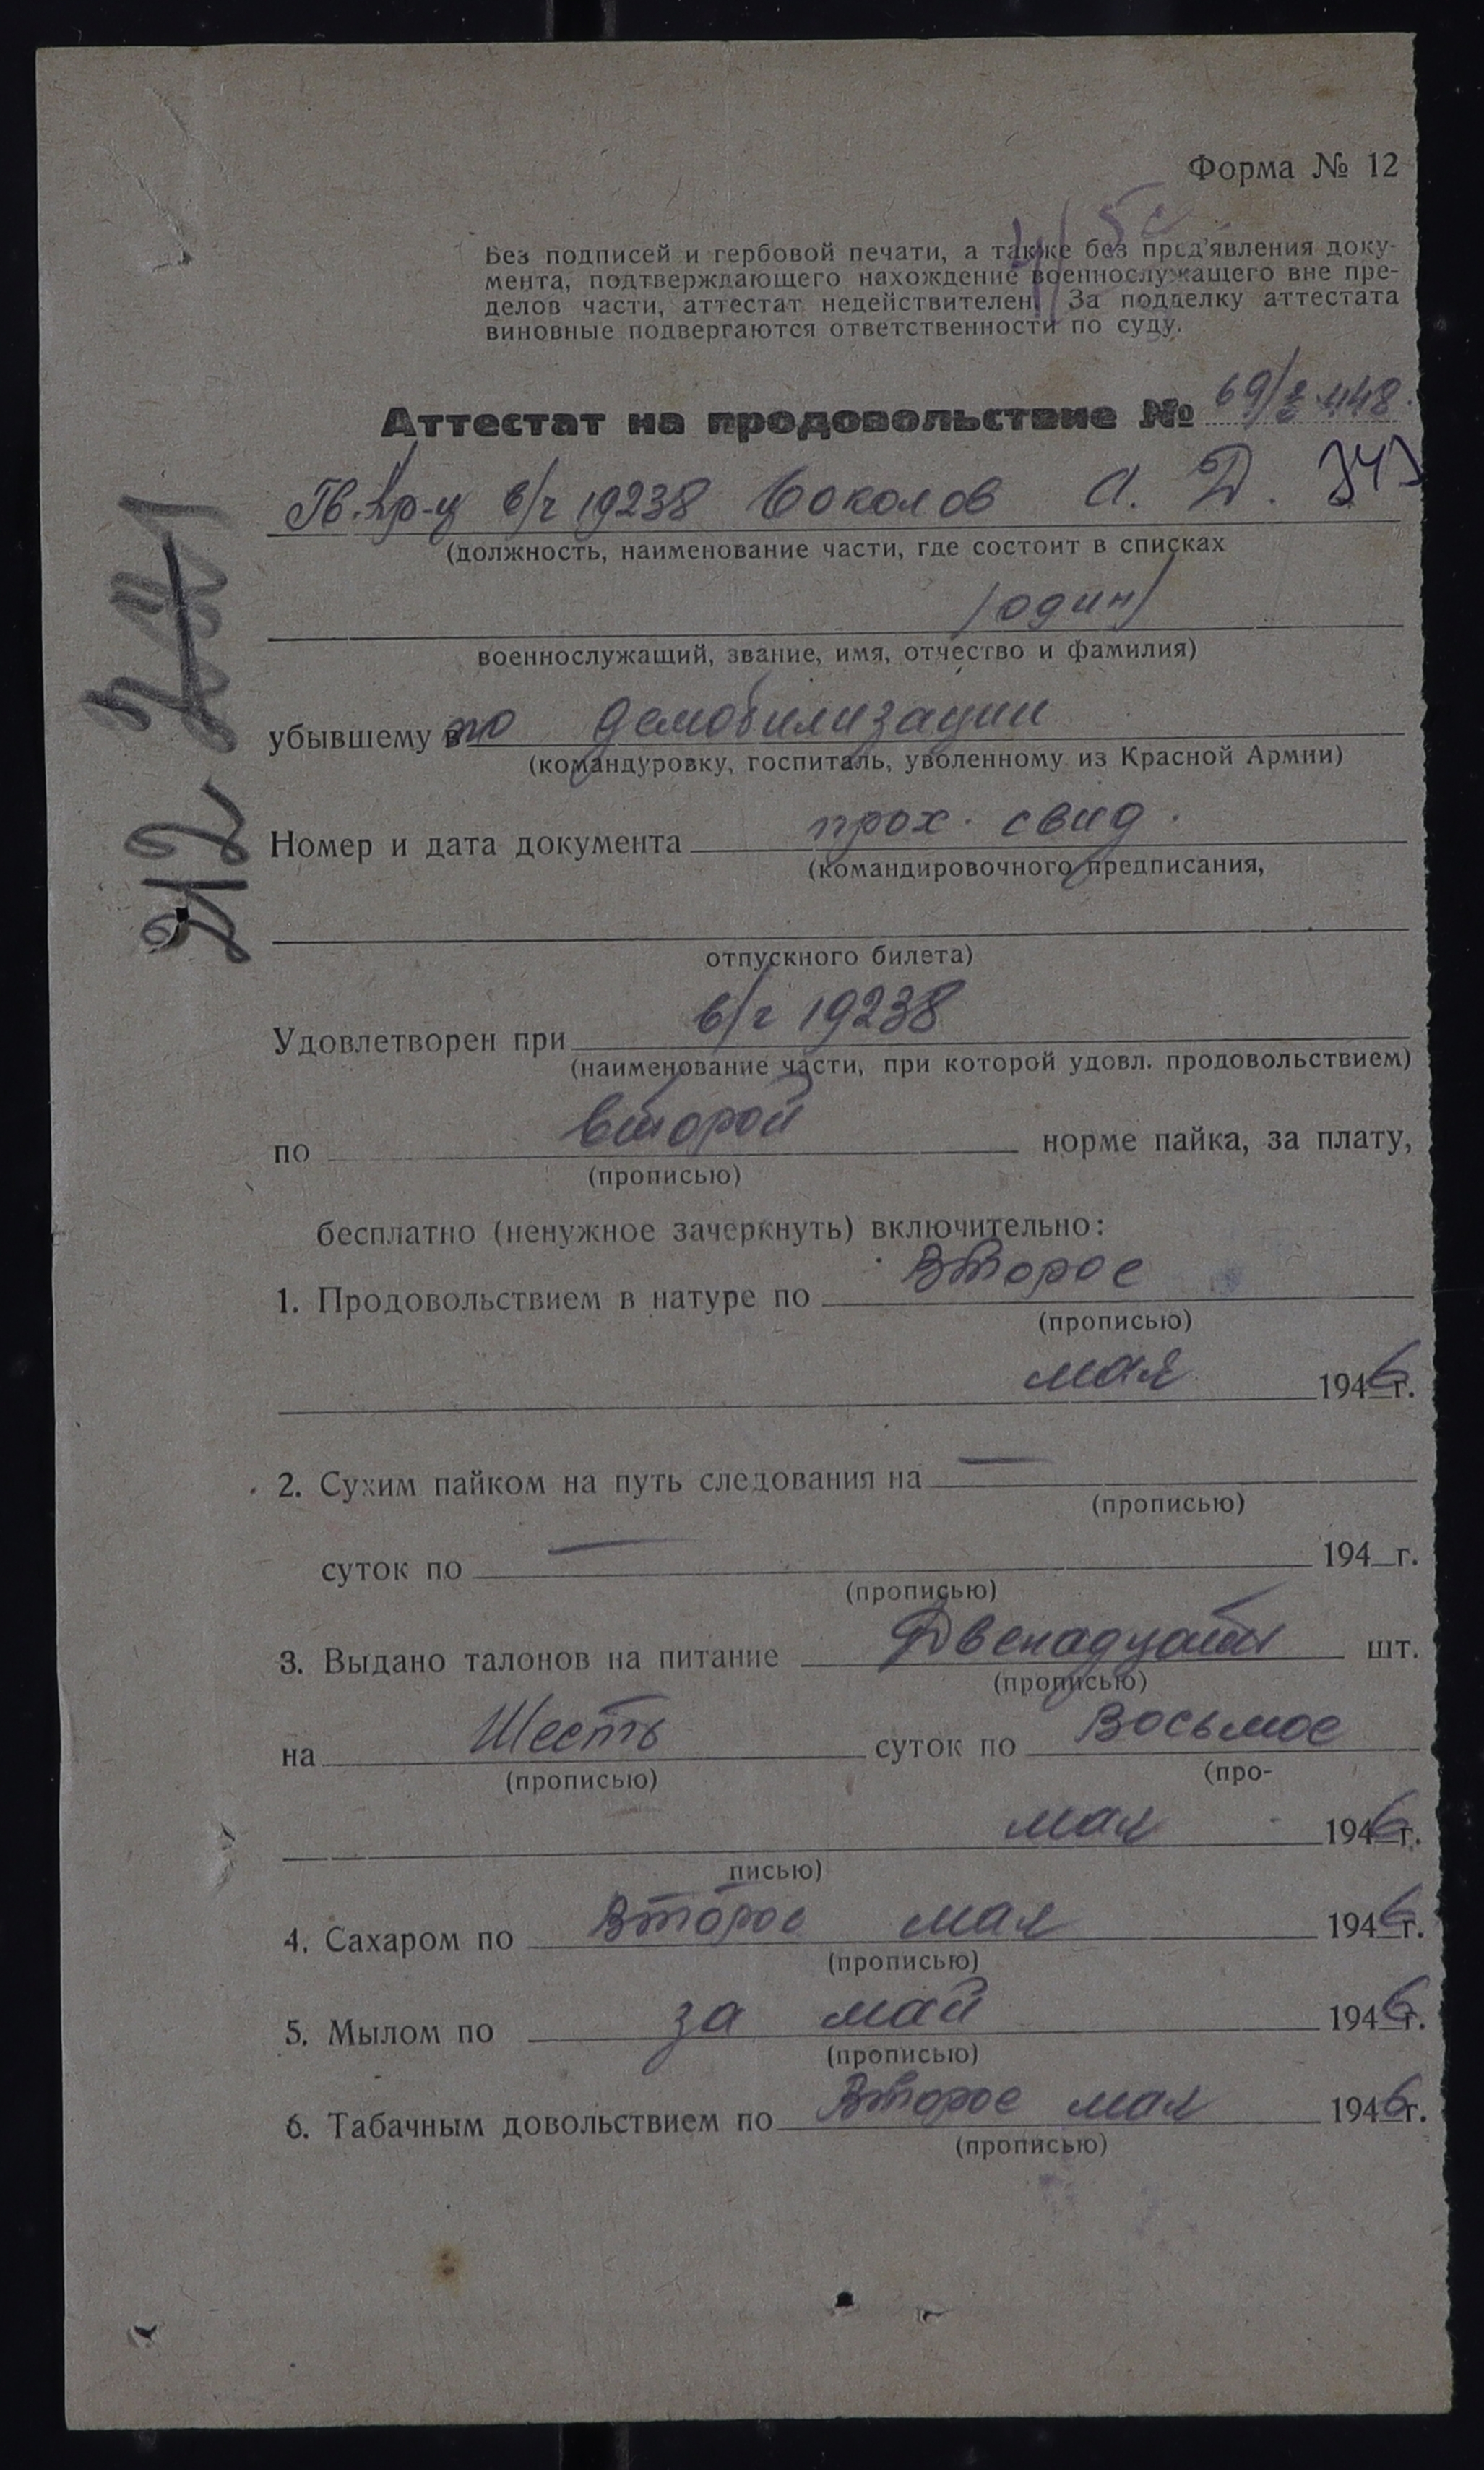 Форма № 12
Без подписей и гербовой печати, а также без пред'явления доку-
мента, подтверждающего нахождение военнослужащего вне пре-
делов части, аттестат недействителен. За подделку аттестата
виновные подвергаются ответственности по суду.
Аттестат на продовольствие №
Гв. кр-ц в/ч 19238 Соколов А. Д.
(должность, наименование части, где состоит в списках
/один/
военнослужащий, звание, имя, отчество и фамилия)
убывшему в по демобилизации
(командуровку, госпиталь, уволенному из Красной Армии)
Номер и дата документа прох. свид.
(командировочного предписания,
отпускного билета)
Удовлетворен при в/ч 19238
(наименование части, при которой удовл. продовольствием)
по второй норме пайка, за плату,
(прописью)
бесплатно (ненужное зачеркнуть) включительно:
1. Продовольствием в натуре по Второе
(прописью)
мая 1946 г.
2. Сухим пайком на путь следования на —
(прописью)
суток по — 194 г.
(прописью)
3. Выдано талонов на питание Двенадцать шт.
(прописью)
на Шесть суток по Восьмое
(прописью) (про-
мая 1946 г.
писью)
4. Сахаром по Второе мая 1946 г.
(прописью)
5. Мылом по за май 1946 г.
(прописью)
6. Табачным довольствием по Второе мая 1946 г.
(прописью)